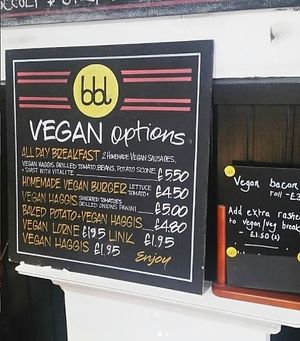 bbl
VEGAN options
ALL DAY BREAKFAST 2 HOMEMADE VEGAN SAUSAGES,
VEGAN HAGGIS, GRILLED TOMATO, BEANS, POTATO SCONE
+ TOAST WITH VITALITE £5.50
HOMEMADE VEGAN BURGER LETTUCE TOMATO+ £4.50
VEGAN HAGGIS SUNDRIED TOMATOES GRILLED ONIONS PANINI £5.00
BAKED POTATO + VEGAN HAGGIS £4.80
VEGAN LORNE £1.95 LINK £1.95
VEGAN HAGGIS £1.95
Enjoy
Vegan bacon
roll - £2
Add extra rasher
to vegan/veg break
- £1.50 (2)